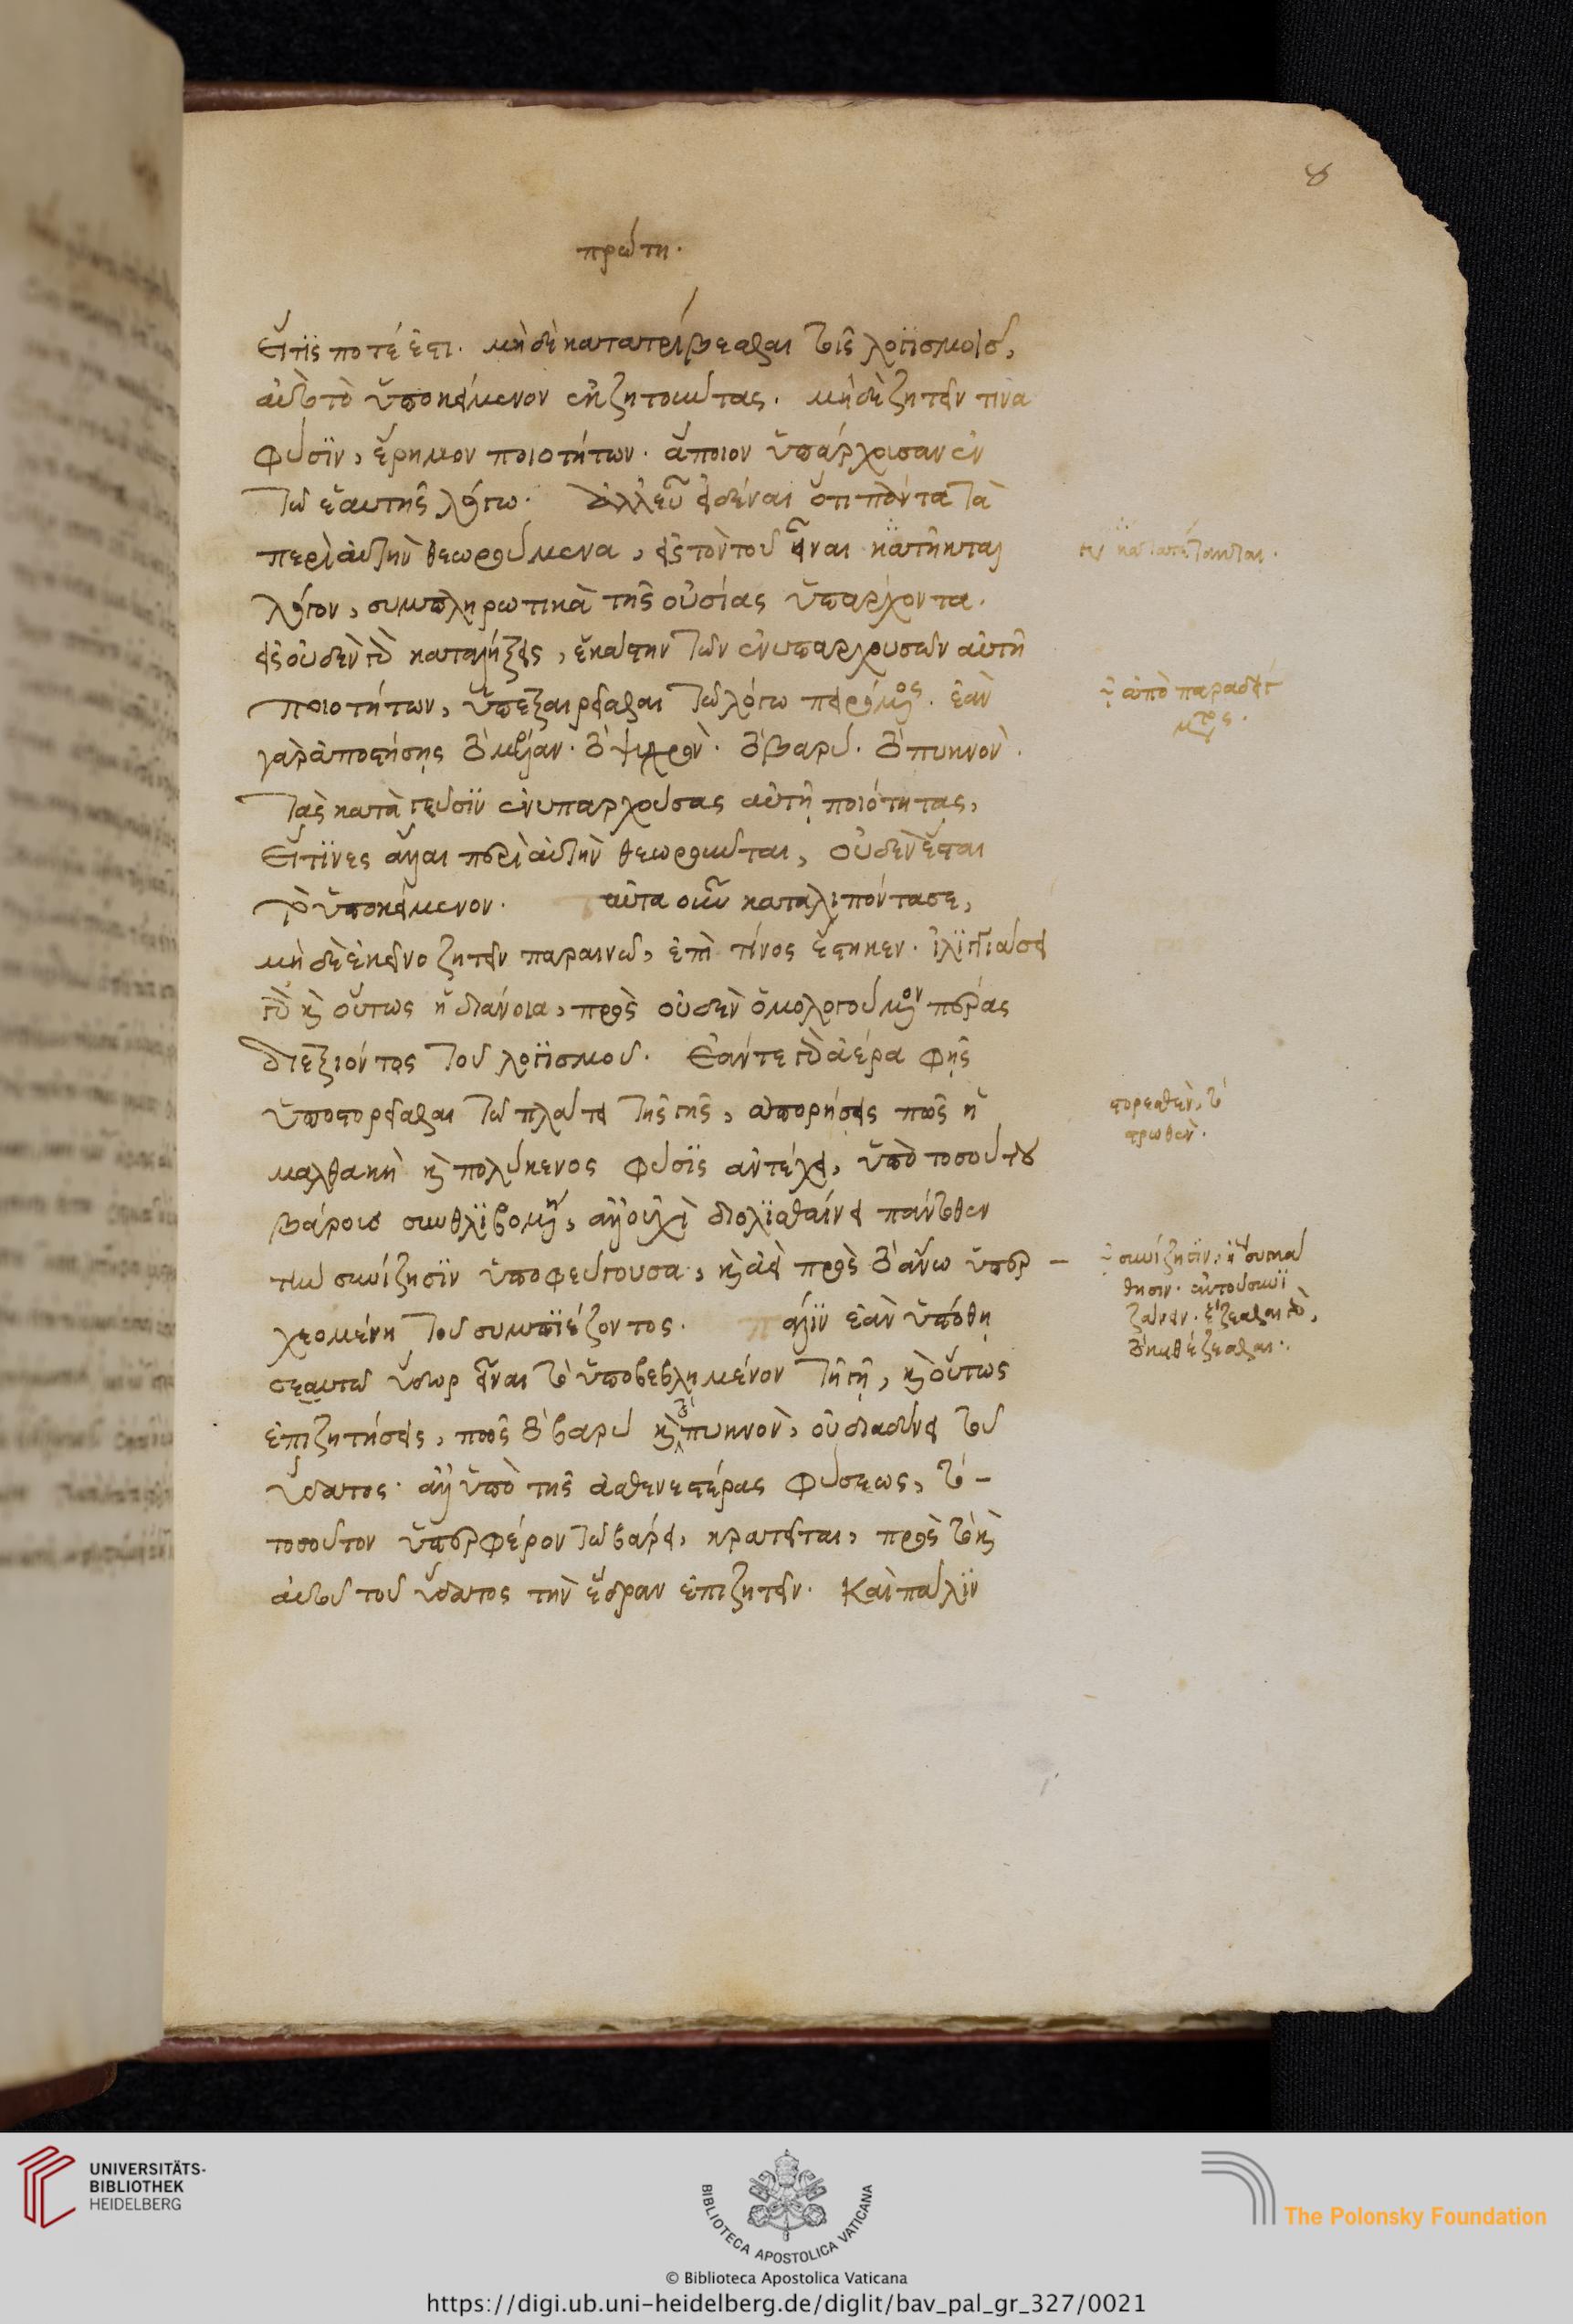 πρώτη.
8
εἴτϊς ποτέ ἐστι. μὴ δὲ κατατρίβεσθαι τοῖς λογϊσμοῖς,
αὐτὸ τὸ ὑποκείμενον ἐκζητοῦντας. μὴ δὲ ζητεῖν τινὰ
φύσϊν, ἔρημον ποιοτήτων. ἄποιον ὑπάρχουσαν ἐν
τῶ ἑαυτῆς λόγω. ἀλλεὖ εἰδέναι ὅτι πάντα τὰ
περὶ αὐτὴν θεωρούμενα, εἰς τὸν τοῦ εἶναι κατῆκται
λόγον, συμπληρωτικὰ τῆς οὐσίας ὑπάρχοντα.
εἰς οὐδὲν γὰρ καταλήξεις, ἑκάστην τῶν ἐνυπαρχουσῶν αὐτῆ
ποιοτήτων, ὑπεξαιρεῖσθαι τῶ λόγω πειρώμενος. ἐὰν
γὰρ ἀποστήσης τὸ μέλαν. τὸ ψυχρὸν. τὸ βαρύ. τὸ πυκνὸν.
τὰς κατὰ γεῦσϊν ἐνυπαρχούσας αὐτῆ ποιότητας,
εἴτϊνες ἄλλαι περὶ αὐτὴν θεωροῦνται, οὐδὲν ἔσται
τὸ ὑποκείμενον. ταῦτα οὖν καταλιπόντα σε,
μὴ δὲ ἐκεῖνο ζητεῖν παραινῶ, ἐπὶ τίνος ἕστηκεν. ἰλϊγγιάσει
γὰρ καὶ οὕτως ἡ διάνοια, πρὸς οὐδὲν ὁμολογούμενον πέρας
διεξιόντος τοῦ λογϊσμοῦ. Ἐάν τε γὰρ ἀέρα φῆς
ὑποστορεῖσθαι τῶ πλάτει τῆς γῆς, ἀπορήσεις πῶς ἡ
μαλθακὴ καὶ πολύκενος φύσϊς ἀντέχει, ὑπὸ τοσούτου
βάρους συνθλϊβομένη, ἀλλ' οὐχὶ διολϊσθαίνει πάντοθεν
τὴν συνίζησϊν ὑποφεύγουσα, καὶ ἀεὶ πρὸς τὸ ἄνω ὑπερ –
χεομένη τοῦ συμπϊέζοντος. πάλϊν ἐὰν ὑπόθη
σεαυτῶ ὕδωρ εἶναι τὸ ὑποβεβλημένον τῆ γῆ, καὶ οὕτως
ἐπιζητήσεις, πῶς τὸ βαρὺ καὶ τὸ πυκνὸν, οὐ διαδύνει τοῦ
ὕδατος. ἀλλ' ὑπὸ τῆς ἀσθενεστέρας φύσεως, τὸ –
τοσοῦτον ὑπερφέρον τῶ βάρει, κρατεῖται, πρὸς τὸ καὶ
αὐτοῦ τοῦ ὕδατος τὴν ἕδραν ἐπιζητεῖν. Καὶ πάλϊν
ἀπὸ παραδείγ
ματος.
στορεσθὲν, τὸ
στρωθὲν.
UNIVERSITÄTS-
BIBLIOTHEK
HEIDELBERG
BIBLIOTECA APOSTOLICA VATICANA
The Polonsky Foundation
© Biblioteca Apostolica Vaticana
https://digi.ub.uni-heidelberg.de/diglit/bav_pal_gr_327/0021